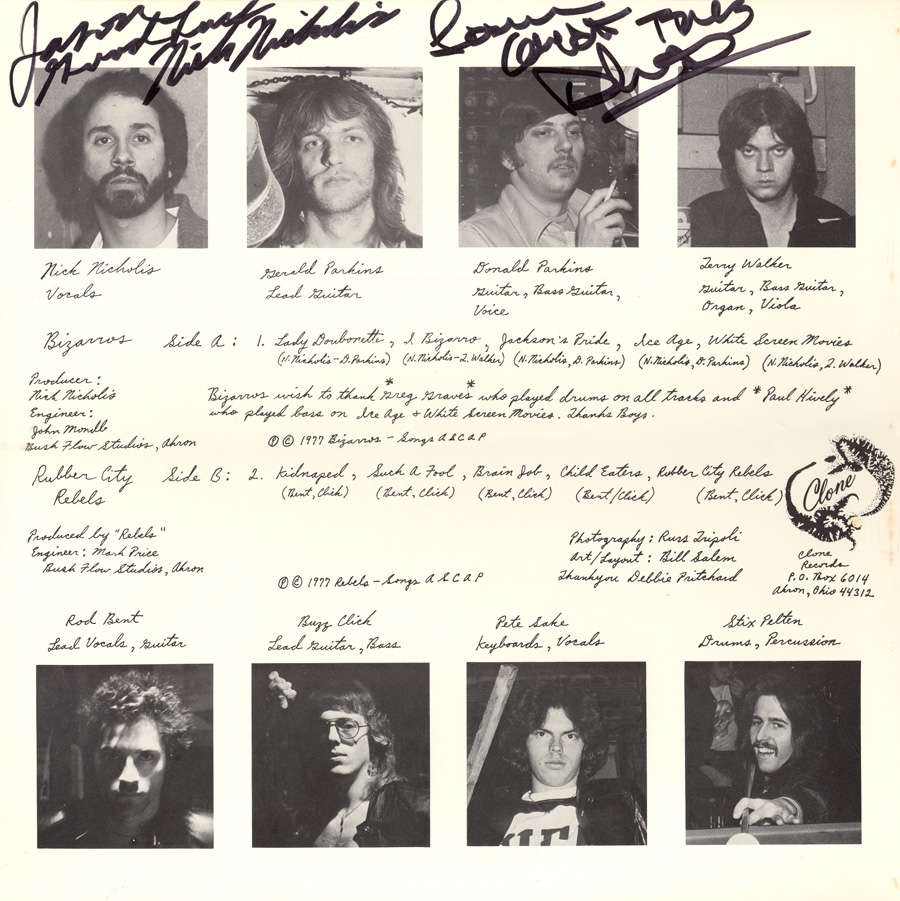 Jason
Good Luck
Nick Nicholis
Nick Nicholis
Vocals
Gerald Parkins
Lead Guitar
Donald Parkins
Guitar, Bass Guitar,
Voice
Terry Walker
Guitar, Bass Guitar,
Organ, Viola
Bizarros Side A: 1. Lady Doubonette, I Bizarro, Jackson's Pride, Ice Age, White Screen Movies
(N. Nicholis - D. Parkins) (N. Nicholis - T. Walker) (N. Nicholis, D. Parkins) (N. Nicholis, D. Parkins) (N. Nicholis, T. Walker)
Producer:
Nick Nicholis
Engineer:
John Mondle
Bush Flow Studios, Akron
Bizarros wish to thank *Greg Graves* who played drums on all tracks and *Paul Hively*
who played bass on Ice Age + White Screen Movies. Thanks Boys.
Ⓟ © 1977 Bizarros - Songs ASCAP
Rubber City Side B: 2. Kidnaped, Such A Fool, Brain Job, Child Eaters, Rubber City Rebels
Rebels (Bent, Click) (Bent, Click) (Bent, Click) (Bent/Click) (Bent, Click)
Clone
Produced by "Rebels"
Engineer: Mark Price
Bush Flow Studios, Akron
Ⓟ © 1977 Rebels - Songs ASCAP
Photography: Russ Tripoli
Art/Layout: Bill Salem
Thankyou Debbie Pritchard
Clone
Records
P.O. Box 6014
Akron, Ohio 44312
Rod Bent
Lead Vocals, Guitar
Buzz Click
Lead Guitar, Bass
Pete Sake
Keyboards, Vocals
Stix Pelten
Drums, Percussion